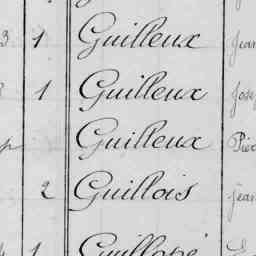 3 1 Guilleux Jean
1 Guilleux Jose
Guilleux Pier
2 Guillois jean
1